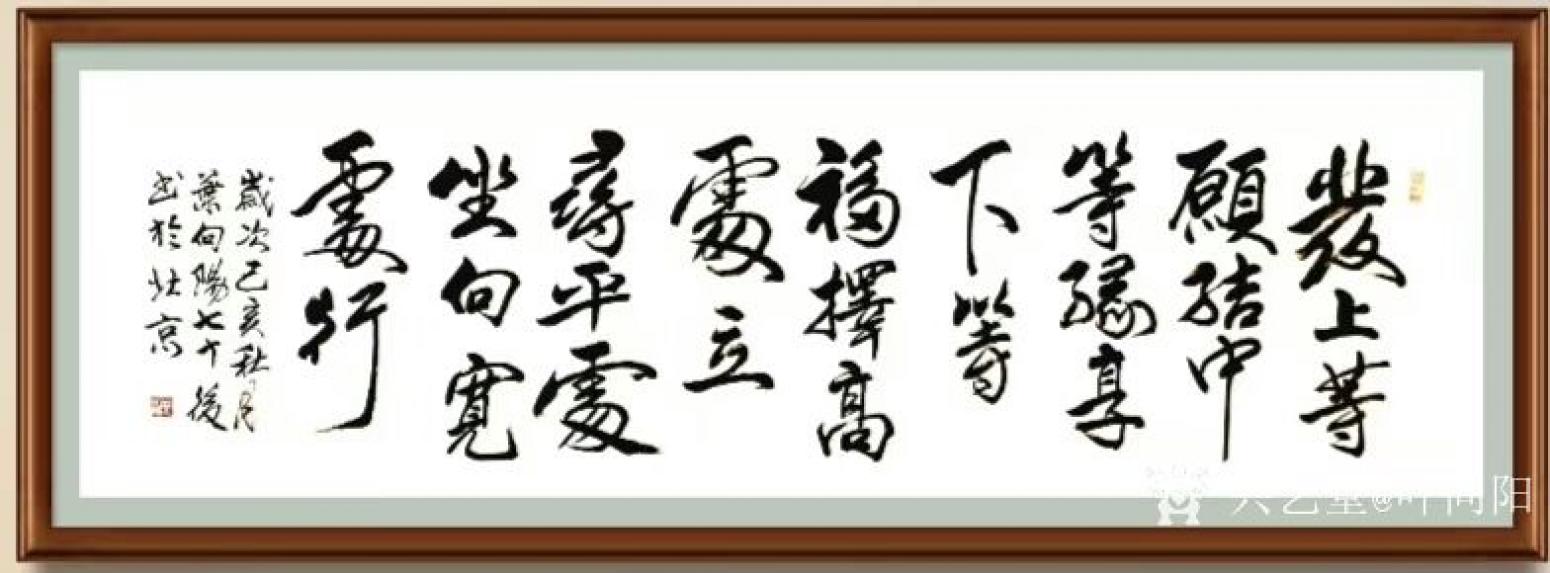 發上等
願結中
等緣享
下等
福擇高
處立
尋平處
坐向寬
處行
歲次己亥秋月
葉向陽七十後
書於北京
兴艺堂@叶向阳